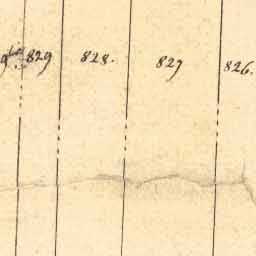 829 828. 827 826.